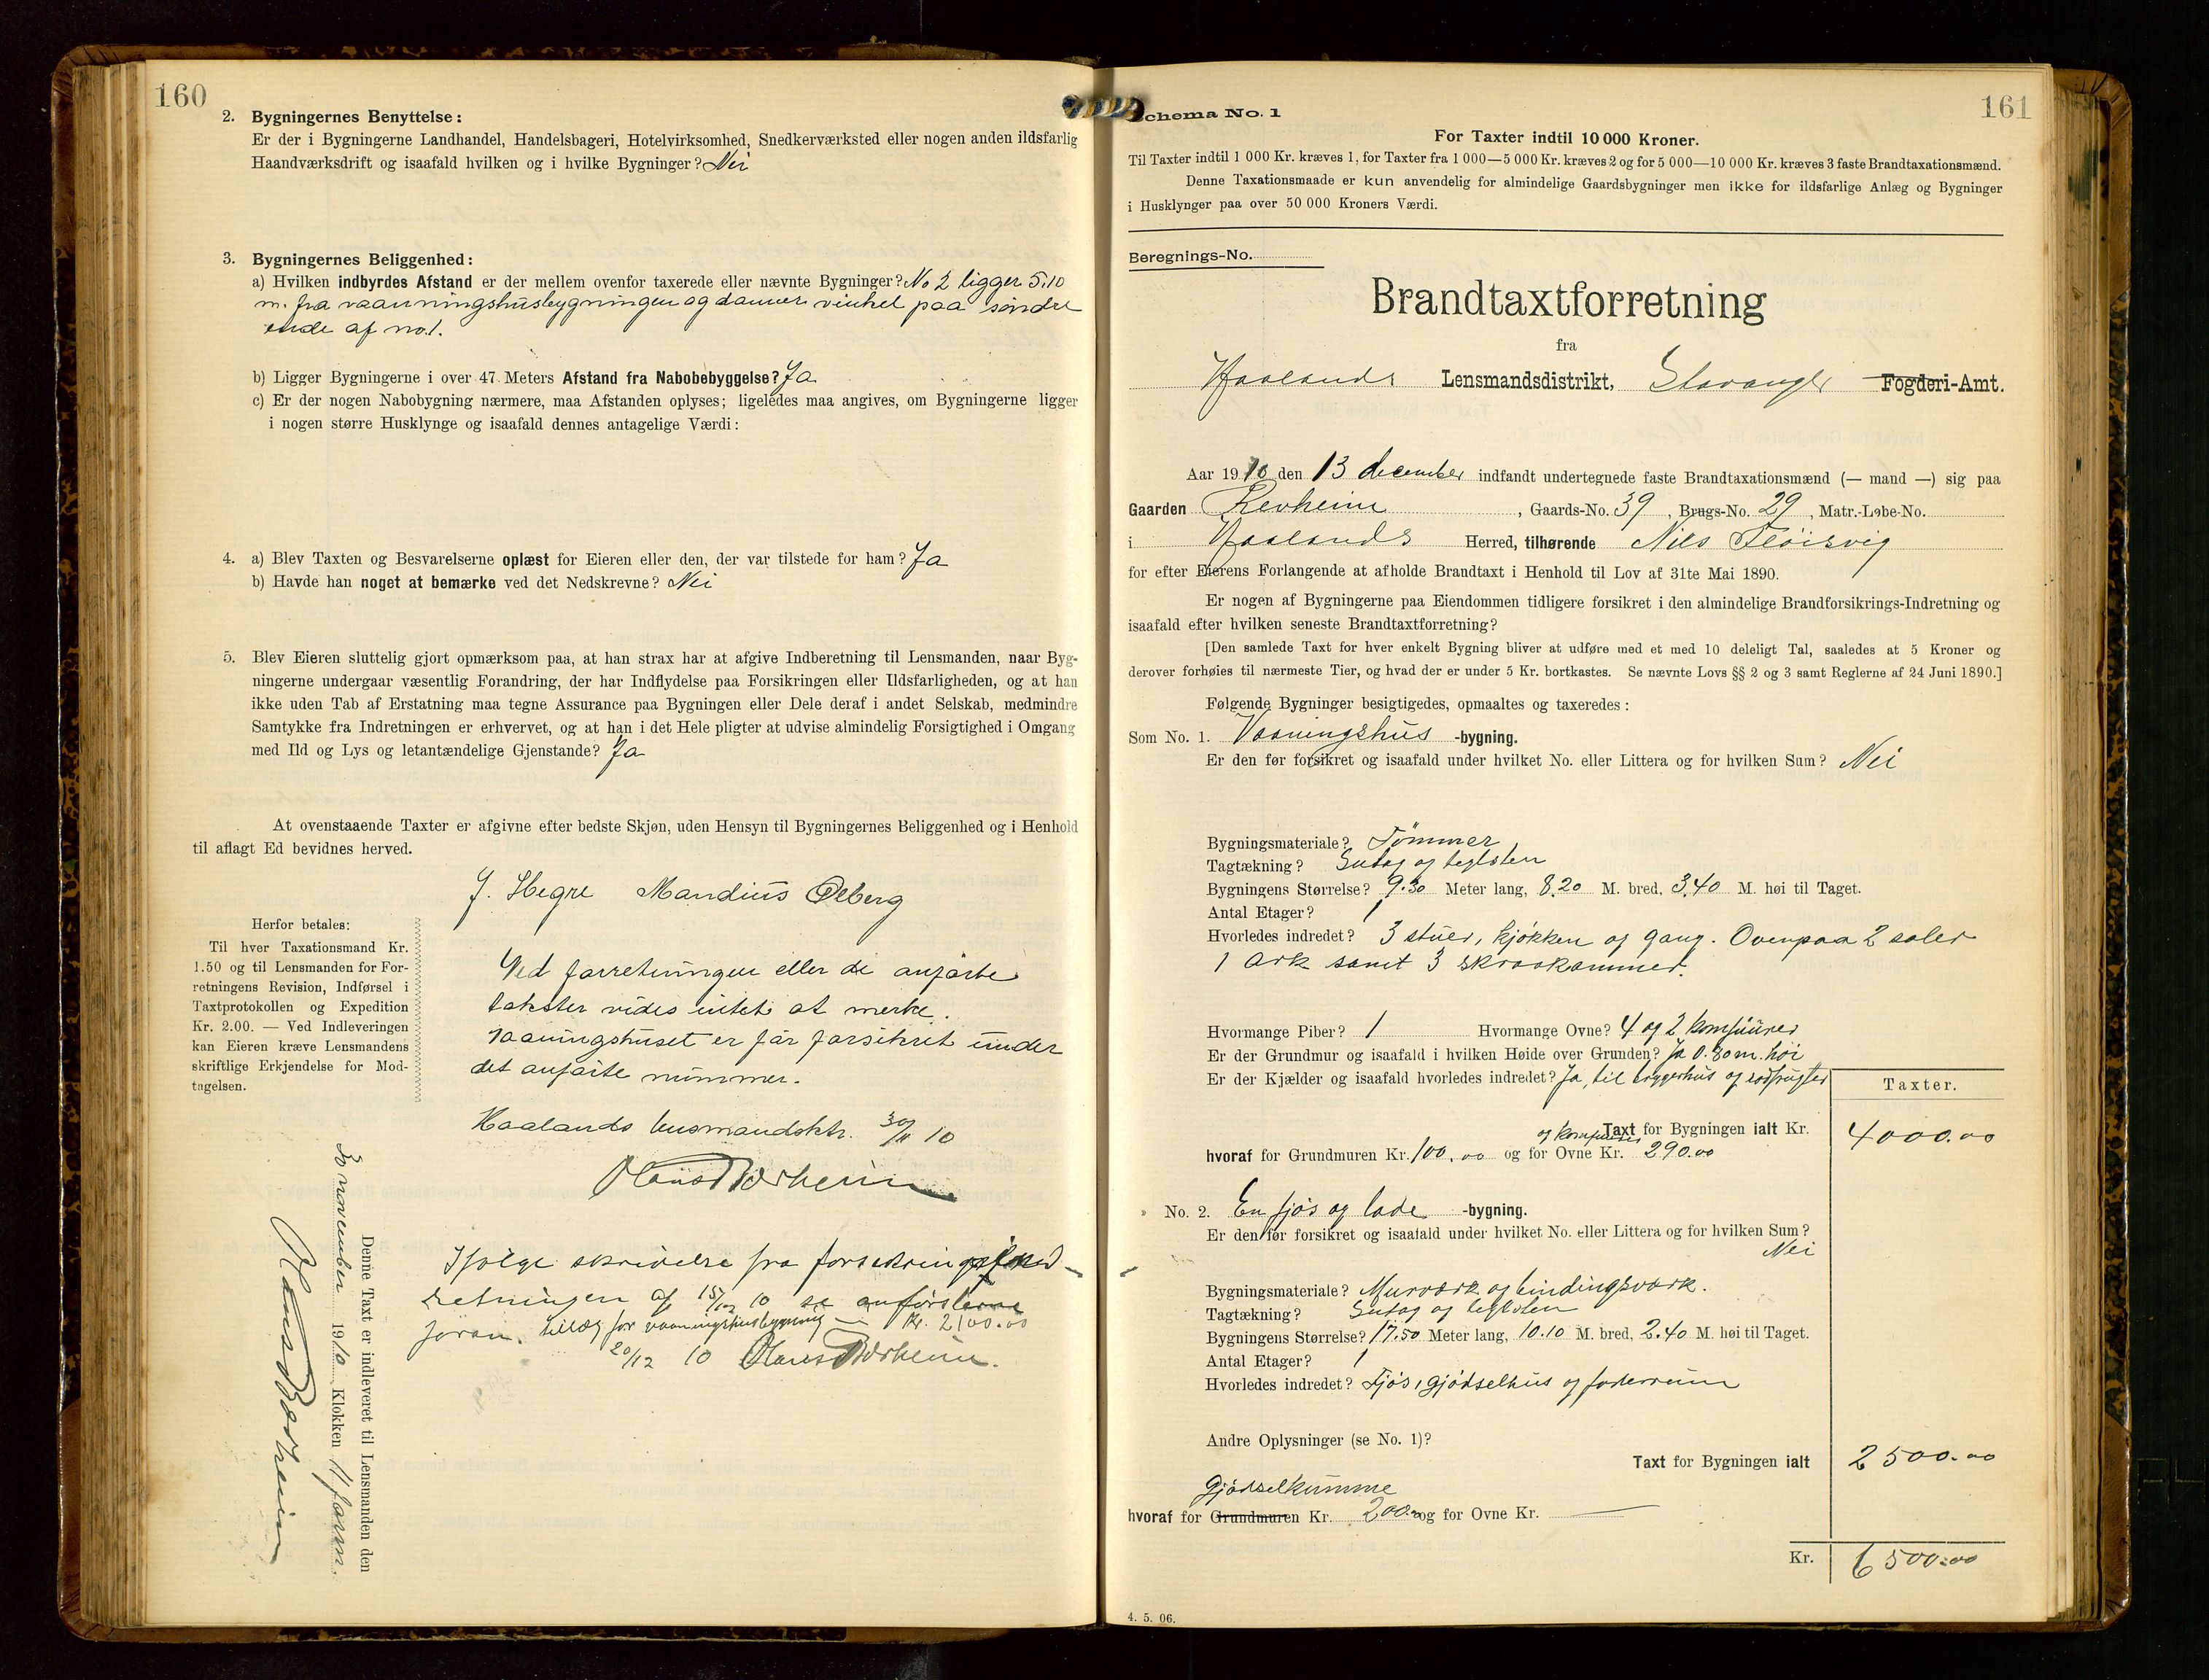 160
2. Bygningernes Benyttelse:
Er der i Bygningerne Landhandel, Handelsbageri, Hotelvirksomhed, Snedkerværksted eller nogen anden ildsfarlig
Haandværksdrift og isaafald hvilken og i hvilke Bygninger? Nei
3. Bygningernes Beliggenhed:
a) Hvilken indbyrdes Afstand er der mellem ovenfor taxerede eller nævnte Bygninger? No 2 ligger 5.10
m. fra vaaningshusbygningen og danner vinkel paa søndre
ende af no. 1.
b) Ligger Bygningerne i over 47 Meters Afstand fra Nabobebyggelse? Ja
c) Er der nogen Nabobygning nærmere, maa Afstanden oplyses; ligeledes maa angives, om Bygningerne ligger
i nogen større Husklynge og isaafald dennes antagelige Værdi:
4. a) Blev Taxten og Besvarelserne oplæst for Eieren eller den, der var tilstede for ham? Ja
b) Havde han noget at bemærke ved det Nedskrevne? Nei
5. Blev Eieren sluttelig gjort opmærksom paa, at han strax har at afgive Indberetning til Lensmanden, naar Byg-
ningerne undergaar væsentlig Forandring, der har Indflydelse paa Forsikringen eller Ildsfarligheden, og at han
ikke uden Tab af Erstatning maa tegne Assurance paa Bygningen eller Dele deraf i andet Selskab, medmindre
Samtykke fra Indretningen er erhvervet, og at han i det Hele pligter at udvise almindelig Forsigtighed i Omgang
med Ild og Lys og letantændelige Gjenstande? Ja
At ovenstaaende Taxter er afgivne efter bedste Skjøn, uden Hensyn til Bygningernes Beliggenhed og i Henhold
til aflagt Ed bevidnes herved.
J. Hegre Mandius Ølberg
Herfor betales:
Til hver Taxationsmand Kr.
1.50 og til Lensmanden for For-
retningens Revision, Indførsel i
Taxtprotokollen og Expedition
Kr. 2.00. — Ved Indleveringen
kan Eieren kræve Lensmandens
skriftlige Erkjendelse for Mod-
tagelsen.
Ved forretningen eller de anførte
takster vides intet at merke.
Vaaningshuset er før forsikret under
det anførte nummer.
Haalands lensmandsktr. 30/11 10
Hans
Denne Taxt er indleveret til Lensmanden den
30 november 1910 Klokken 11 form.
Hans
Ifølge skrivelse fra forsikringsind-
retningen af 15/12 10 se anførslerne
foran. tillæg for vaaningshusbygning — Kr. 2100.00
20/12 10 Hans
161
Schema No. 1
For Taxter indtil 10 000 Kroner.
Til Taxter indtil 1 000 Kr. kræves 1, for Taxter fra 1 000—5 000 Kr. kræves 2 og for 5 000—10 000 Kr. kræves 3 faste Brandtaxationsmænd.
Denne Taxationsmaade er kun anvendelig for almindelige Gaardsbygninger men ikke for ildsfarlige Anlæg og Bygninger
i Husklynger paa over 50 000 Kroners Værdi.
Beregnings-No.
Brandtaxtforretning
fra
Haalands Lensmandsdistrikt, Stavanger Fogderi-Amt.
Aar 1910 den 13 december indfandt undertegnede faste Brandtaxationsmænd (— mand —) sig paa
Gaarden Revheim, Gaards-No. 39, Brugs-No. 29, Matr.-Løbe-No.
i Haalands Herred, tilhørende Nils Fløisvig
for efter Eierens Forlangende at afholde Brandtaxt i Henhold til Lov af 31te Mai 1890.
Er nogen af Bygningerne paa Eiendommen tidligere forsikret i den almindelige Brandforsikrings-Indretning og
isaafald efter hvilken seneste Brandtaxtforretning?
[Den samlede Taxt for hver enkelt Bygning bliver at udføre med et med 10 deleligt Tal, saaledes at 5 Kroner og
derover forhøies til nærmeste Tier, og hvad der er under 5 Kr. bortkastes. Se nævnte Lovs §§ 2 og 3 samt Reglerne af 24 Juni 1890.]
Følgende Bygninger besigtigedes, opmaaltes og taxeredes:
Som No. 1. Vaaningshus -bygning.
Er den før forsikret og isaafald under hvilket No. eller Littera og for hvilken Sum? Nei
Bygningsmateriale? Tømmer
Tagtækning? Sutag og teglsten
Bygningens Størrelse? 9.30 Meter lang, 8.20 M. bred, 3.40 M. høi til Taget.
Antal Etager? 1
Hvorledes indredet? 3 stuer, kjøkken og gang. Ovenpaa 2 saler
1 ark samt 3 skraakammer.
Hvormange Piber? 1 Hvormange Ovne? 4 og 2 komfuurer
Er der Grundmur og isaafald i hvilken Høide over Grunden? Ja 0.80 m. høi
Er der Kjælder og isaafald hvorledes indredet? Ja, til bryggerhus og rodfrugter
Taxter.
Taxt for Bygningen ialt Kr. 4000.00
og komfuurer
hvoraf for Grundmuren Kr. 100.00 og for Ovne Kr. 290.00
» No. 2. En fjøs og lade -bygning.
Er den før forsikret og isaafald under hvilket No. eller Littera og for hvilken Sum?
Nei
Bygningsmateriale? Murværk og bindingsværk.
Tagtækning? Sutag og teglsten
Bygningens Størrelse? 17.50 Meter lang, 10.10 M. bred, 2.40 M. høi til Taget.
Antal Etager? 1
Hvorledes indredet? Fjøs, gjødselhus og foderrum
Andre Oplysninger (se No. 1)?
Taxt for Bygningen ialt 2500.00
Gjødselkumme
hvoraf for Grundmuren Kr. 200.00 og for Ovne Kr. —
Kr. 6500.00
4. 5. 06.